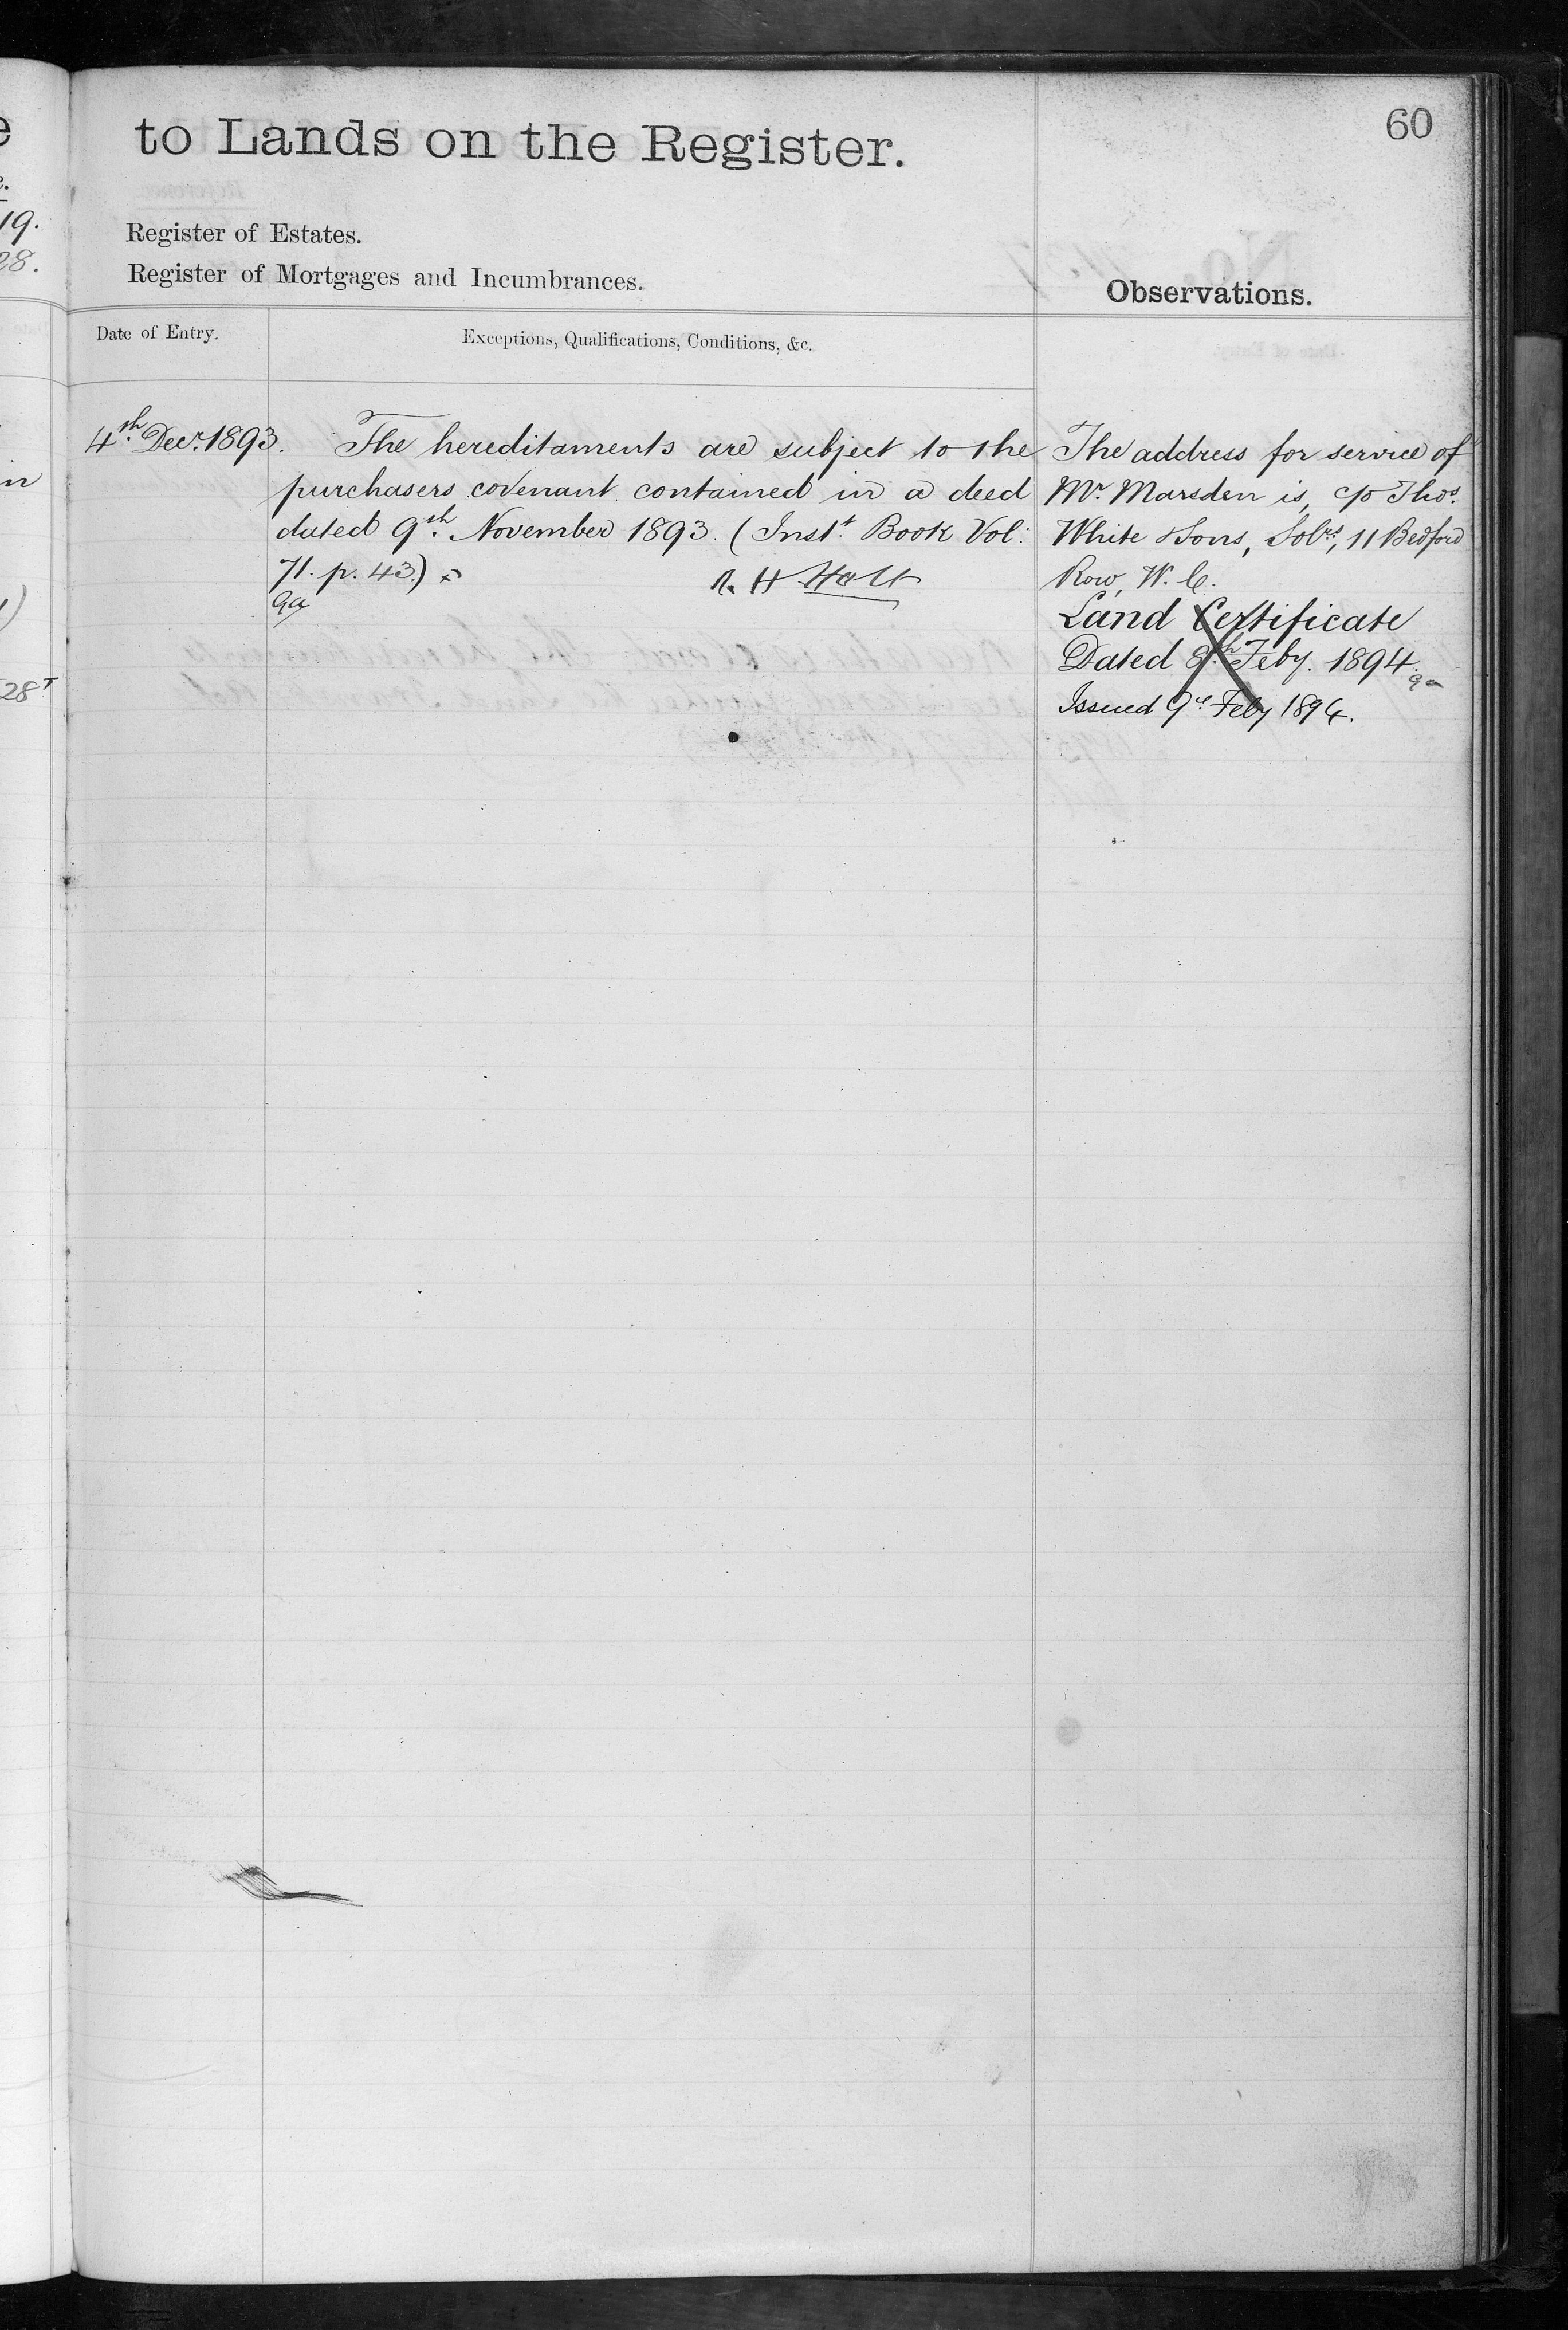 60
to Lands on the Register.
Register of Estates.
Register of Mortgages and Incumbrances.
Observations.
Date of Entry.
Exceptions, Qualifications, Conditions, &c.
4th Decr. 1893.
The hereditaments are subject to the
purchasers covenant contained in a deed
dated 9th November 1893. (Inst. Book Vol:
71. p. 43.)
H Holt
The address for service of
Mr. Marsden is, c/o Thos.
White & Sons, Solrs, 11 Bedford
Row, W. C.
Land Certificate
Dated 8th Feby. 1894.
Issued 9th Feby 1894.
19.
28.
in
28